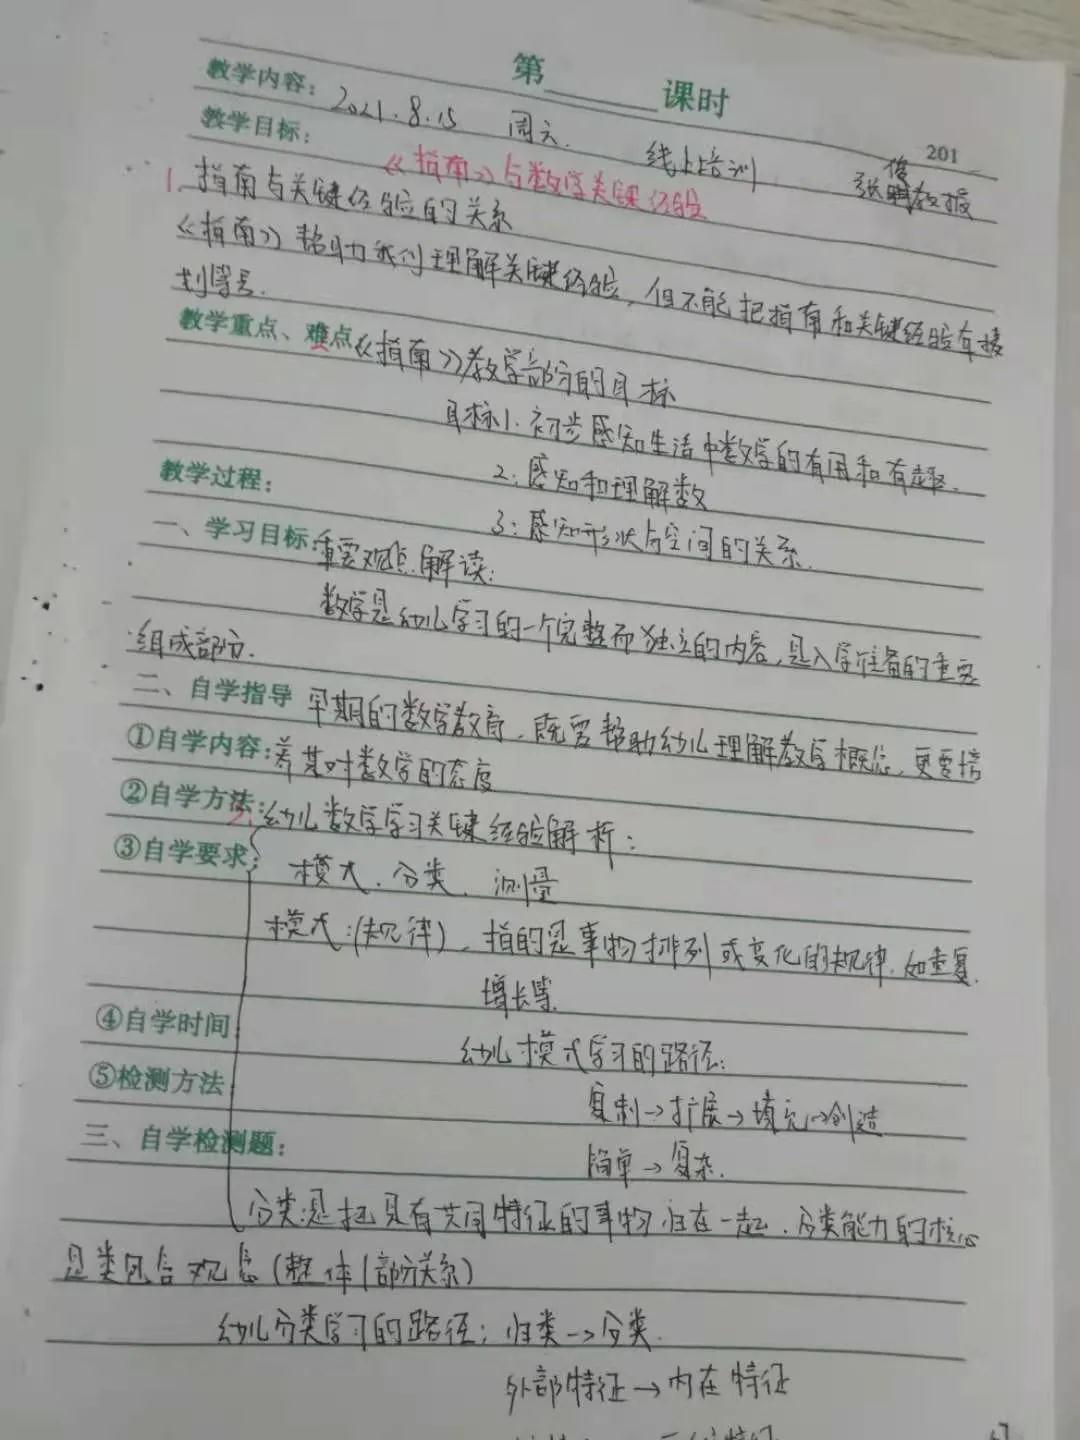 第 课时
教学内容：2021.8.15 周六 线上培训 201
张俊教授
教学目标：《指南》与数学关键经验
1. 指南与关键经验的关系
《指南》帮助我们理解关键经验，但不能把指南和关键经验直接
划等号.
教学重点、难点《指南》教学部分的目标
目标1. 初步感知生活中数学的有用和有趣.
教学过程： 2：感知和理解数
3：感知形状与空间的关系.
一、学习目标：重要观点解读：
数学是幼儿学习的一个完整而独立的内容，是入学准备的重要
组成部分.
二、自学指导 早期的数学教育，既要帮助幼儿理解数学概念，更要培
①自学内容：养其对数学的态度
②自学方法：2.幼儿数学学习关键经验解析：
③自学要求：模式、分类、测量
模式：(规律)，指的是事物排列或变化的规律.如重复.
增长等.
④自学时间 幼儿模式学习的路径：
⑤检测方法 复制→扩展→填充→创造
三、自学检测题： 简单→复杂.
分类：是把具有共同特征的事物归在一起.分类能力的核心
是类包含观念(整体/部分关系)
幼儿分类学习的路径：归类→分类.
外部特征→内在特征